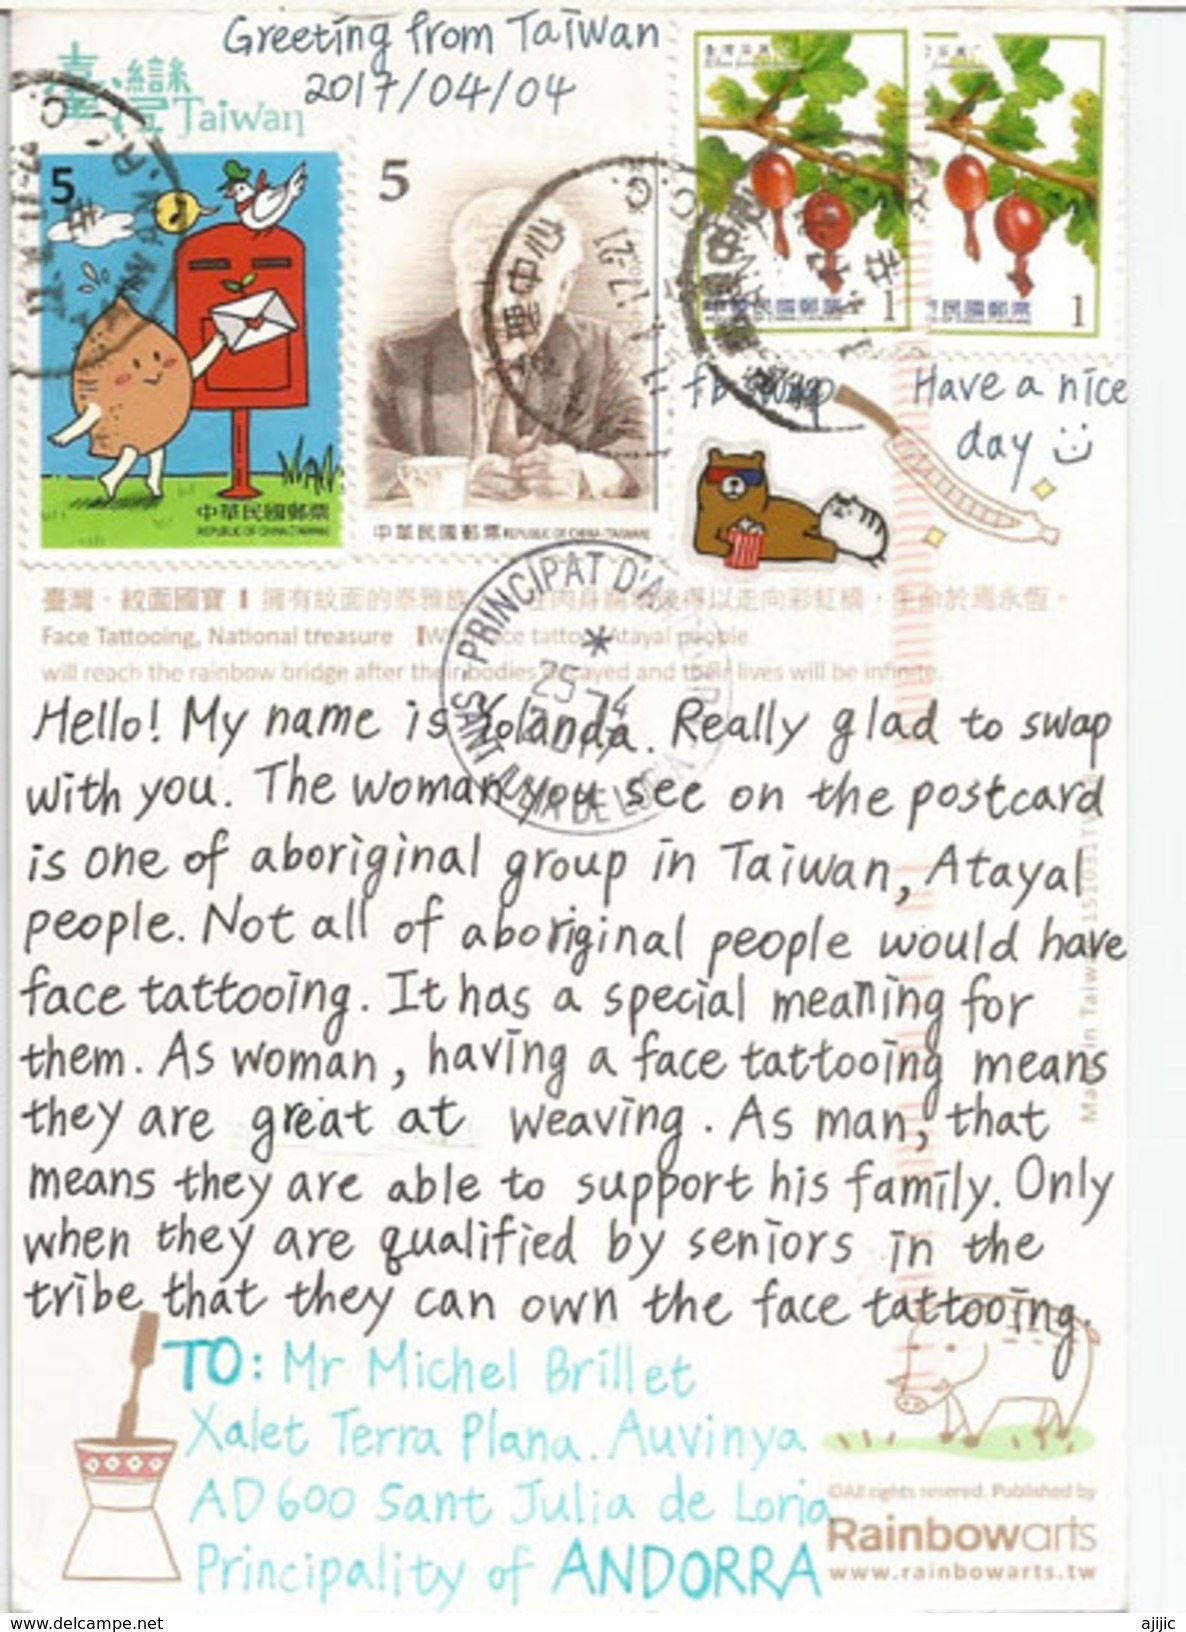 Greeting from Taiwan
2017/04/04
臺灣 Taiwan
5
中華民國郵票
REPUBLIC OF CHINA (TAIWAN)
5
中華民國郵票 REPUBLIC OF CHINA (TAIWAN)
中華民國郵票 1
民國郵票 1
fb swap
Have a nice
day
PRINCIPAT D'A
25 -4
SANT JULIA DE LORIA
臺灣・紋面國寶 | 擁有紋面的泰雅族
Face Tattooing, National treasure | With face tattoo, Atayal people
will reach the rainbow bridge after their bodies decayed and their lives will be infinite.
Hello! My name is Yolanda. Really glad to swap
with you. The woman you see on the postcard
is one of aboriginal group in Taiwan, Atayal
people. Not all of aboriginal people would have
face tattooing. It has a special meaning for
them. As woman, having a face tattooing means
they are great at weaving. As man, that
means they are able to support his family. Only
when they are qualified by seniors in the
tribe that they can own the face tattooing.
Made in Taiwan
TO: Mr Michel Brillet
Xalet Terra Plana. Auvinya
AD600 Sant Julia de Loria
Principality of ANDORRA
©All rights resered. Published by
Rainbowarts
www.rainbowarts.tw
www.delcampe.net
ajijic